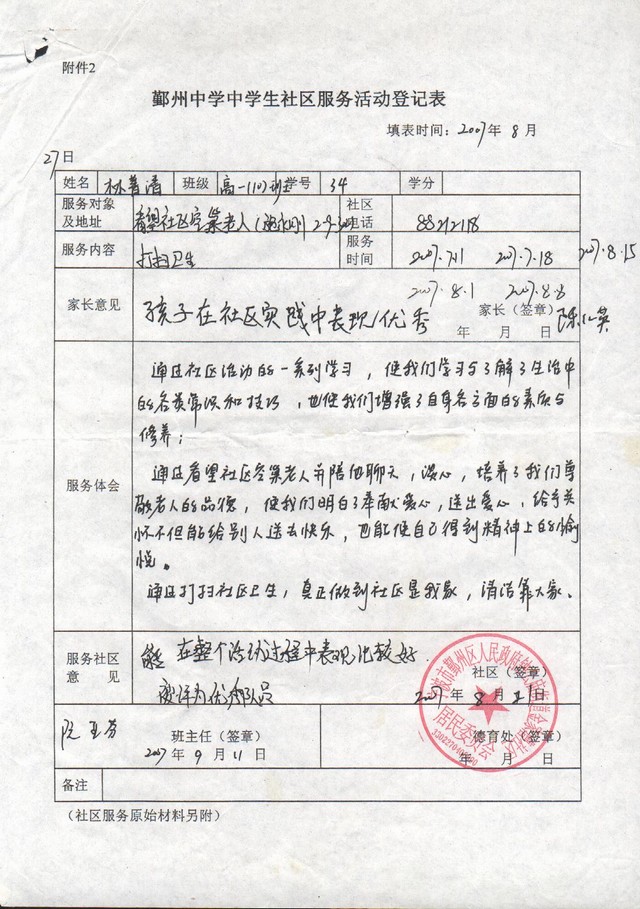 附件2
鄞州中学中学生社区服务活动登记表
填表时间：2007年8月
27日
姓名 林善清 班级 高一(10)班 学号 34 学分
服务对象及地址 看望社区空巢老人 2-9-302 社区电话 88212118
服务内容 打扫卫生 服务时间 2007.7.11 2007.7.18 2007.8.15
2007.8.1 2007.8.8
家长意见 孩子在社区实践中表现优秀 家长（签章）
年 月 日
通过社区活动的一系列学习，使我们学习与了解了生活中
的各类常识和技巧，也使我们增强了自身各方面的素质与
修养；
服务体会
通过看望社区空巢老人并陪他聊天，谈心，培养了我们尊
敬老人的品德，使我们明白了奉献爱心，送出爱心，给予关
怀不但能给别人送去快乐，也能使自己得到精神上的愉
悦。
通过打扫社区卫生，真正做到社区是我家，清洁靠大家。
服务社区意见 能在整个活动过程中表现比较好
被评为优秀队员
社区（签章）
2007年8月21日
班主任（签章） 德育处（签章）
2007年9月11日 年 月 日
居民委员会
备注
（社区服务原始材料另附）